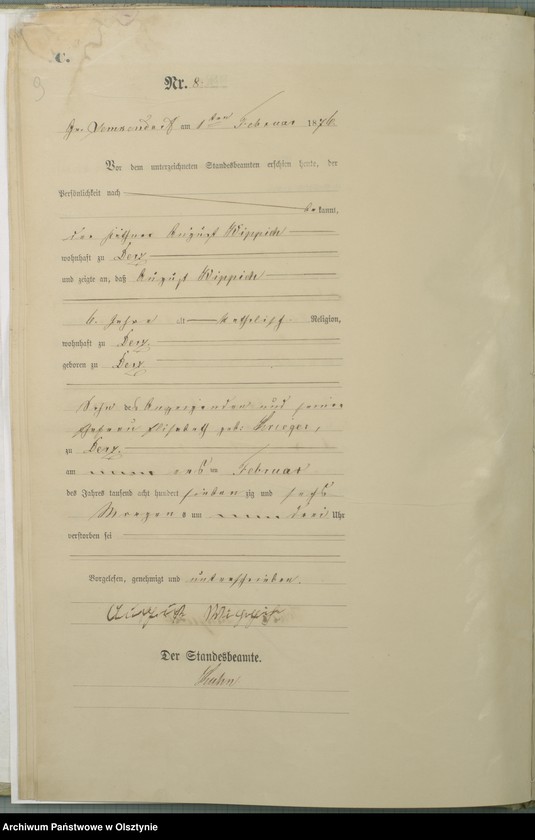 C.
9
Nr. 8.
am 1ten Februar 1876.
Vor dem unterzeichneten Standesbeamten erschien heute, der
Persönlichkeit nach
bekannt,
der August Wippich
wohnhaft zu Derz
und zeigte an, daß August Wippich
Jahre alt katholisch Religion,
wohnhaft zu Derz,
geboren zu Derz
Sohn des Anzeigenden und seiner
Ehefrau Elisabeth geb: Krieger,
zu Derz.
am Februar
des Jahres tausend acht hundert sieben zig und sechs
Morgens um drei Uhr
verstorben sei
Vorgelesen, genehmigt und unterschrieben.
August
Der Standesbeamte.
Archiwum Państwowe w Olsztynie